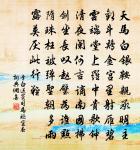 天馬白銀鞍親承明主
歡鬥雞金宮裏射雁碧
雲端堂上羅中貴歌鐘
清夜闌何言謫南國拂
劍坐長嘆趙璧為誰點
隋珠枉被彈聖朝多雨
露莫厭此行難
李白送竇司馬貶宜春